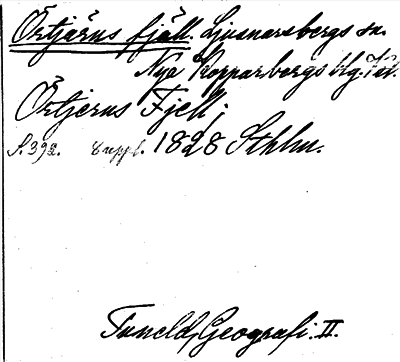 Örtjärns fjäll. Ljusnarsbergs sn.
Nya Kopparbergs blg. Vstm.
Örtjerns Fjell,
S. 392. Suppl. 1828 Sthlm.
Tuneld, Geografi. II.